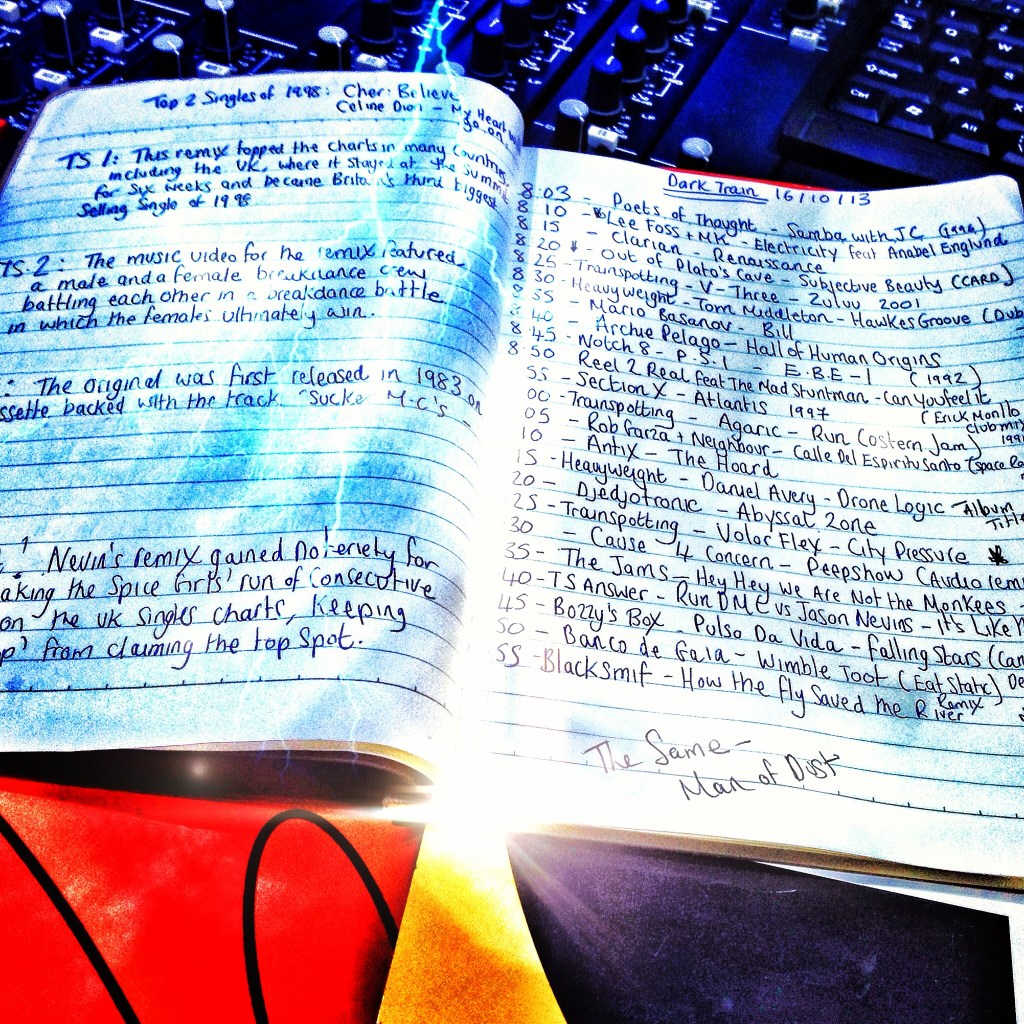 Top 2 Singles of 1998: Cher: Believe
Celine Dion - My Heart will
go on
TS 1: This remix topped the charts in many countries
including the UK, where it stayed at the summit
for six weeks and became Britain's third biggest
selling single of 1998
TS-2: The music video for the remix featured
a male and a female breakdance crew
battling each other in a breakdance battle
in which the females ultimately win.
: The original was first released in 1983 on
ssette backed with the track. "Sucker M.C's
Nevin's remix gained notoriety for
aking the Spice Girls' run of consecutive
on the UK singles charts, keeping
p' from claiming the top spot.
Dark Train 16/10/13
8:03 - Poets of Thought - Samba with JC (1994)
8 10 - Lee Foss + MK - Electricity feat Anabel Englund
8 15 - Clarian - Renaissance
8 20 - Out of Plato's Cave - Subjective Beauty (CARD)
8 25 - Transpotting - V-Three - Zuluu 2001
8 30 - Heavyweight - Tom Middleton - Hawkes Groove (Dub
8 35 - Mario Basanov - Bill
8 40 - Archie Pelago - Hall of Human Origins
8.45 - Notch 8 - P.S.I - E.B.E-1 (1992)
8 50 Reel 2 Real feat The Mad Stuntman - Can you feel it
(Erick Morillo
club mix
55 - Section X - Atlantis 1997
00 - Transpotting - Agaric - Run (ostern Jam)
05 - Rob Garza + Neighbour - Calle Del Espiritu Santo (Space
10 - Antix - The Hoard
15 - Heavyweight - Daniel Avery - Drone Logic - Album
Title
20 - Djedjotronic - Abyssal Zone
25 - Transpotting - Volor Flex - City Pressure
30 - Cause 4 Concern - Peepshow (Audio
35 - The Jams - Hey Hey We Are Not the Monkees -
40 - TS Answer - Run DMC vs Jason Nevins - It's Like
45 - Bozzy's Box - Pulso Da Vida - Falling Stars
50 - Banco de Gaia - Wimble Toot (Eat Static)
Remix
55 - Blacksmif - How the fly Saved the River
The Same -
Man of Dust
Ctrl
Alt